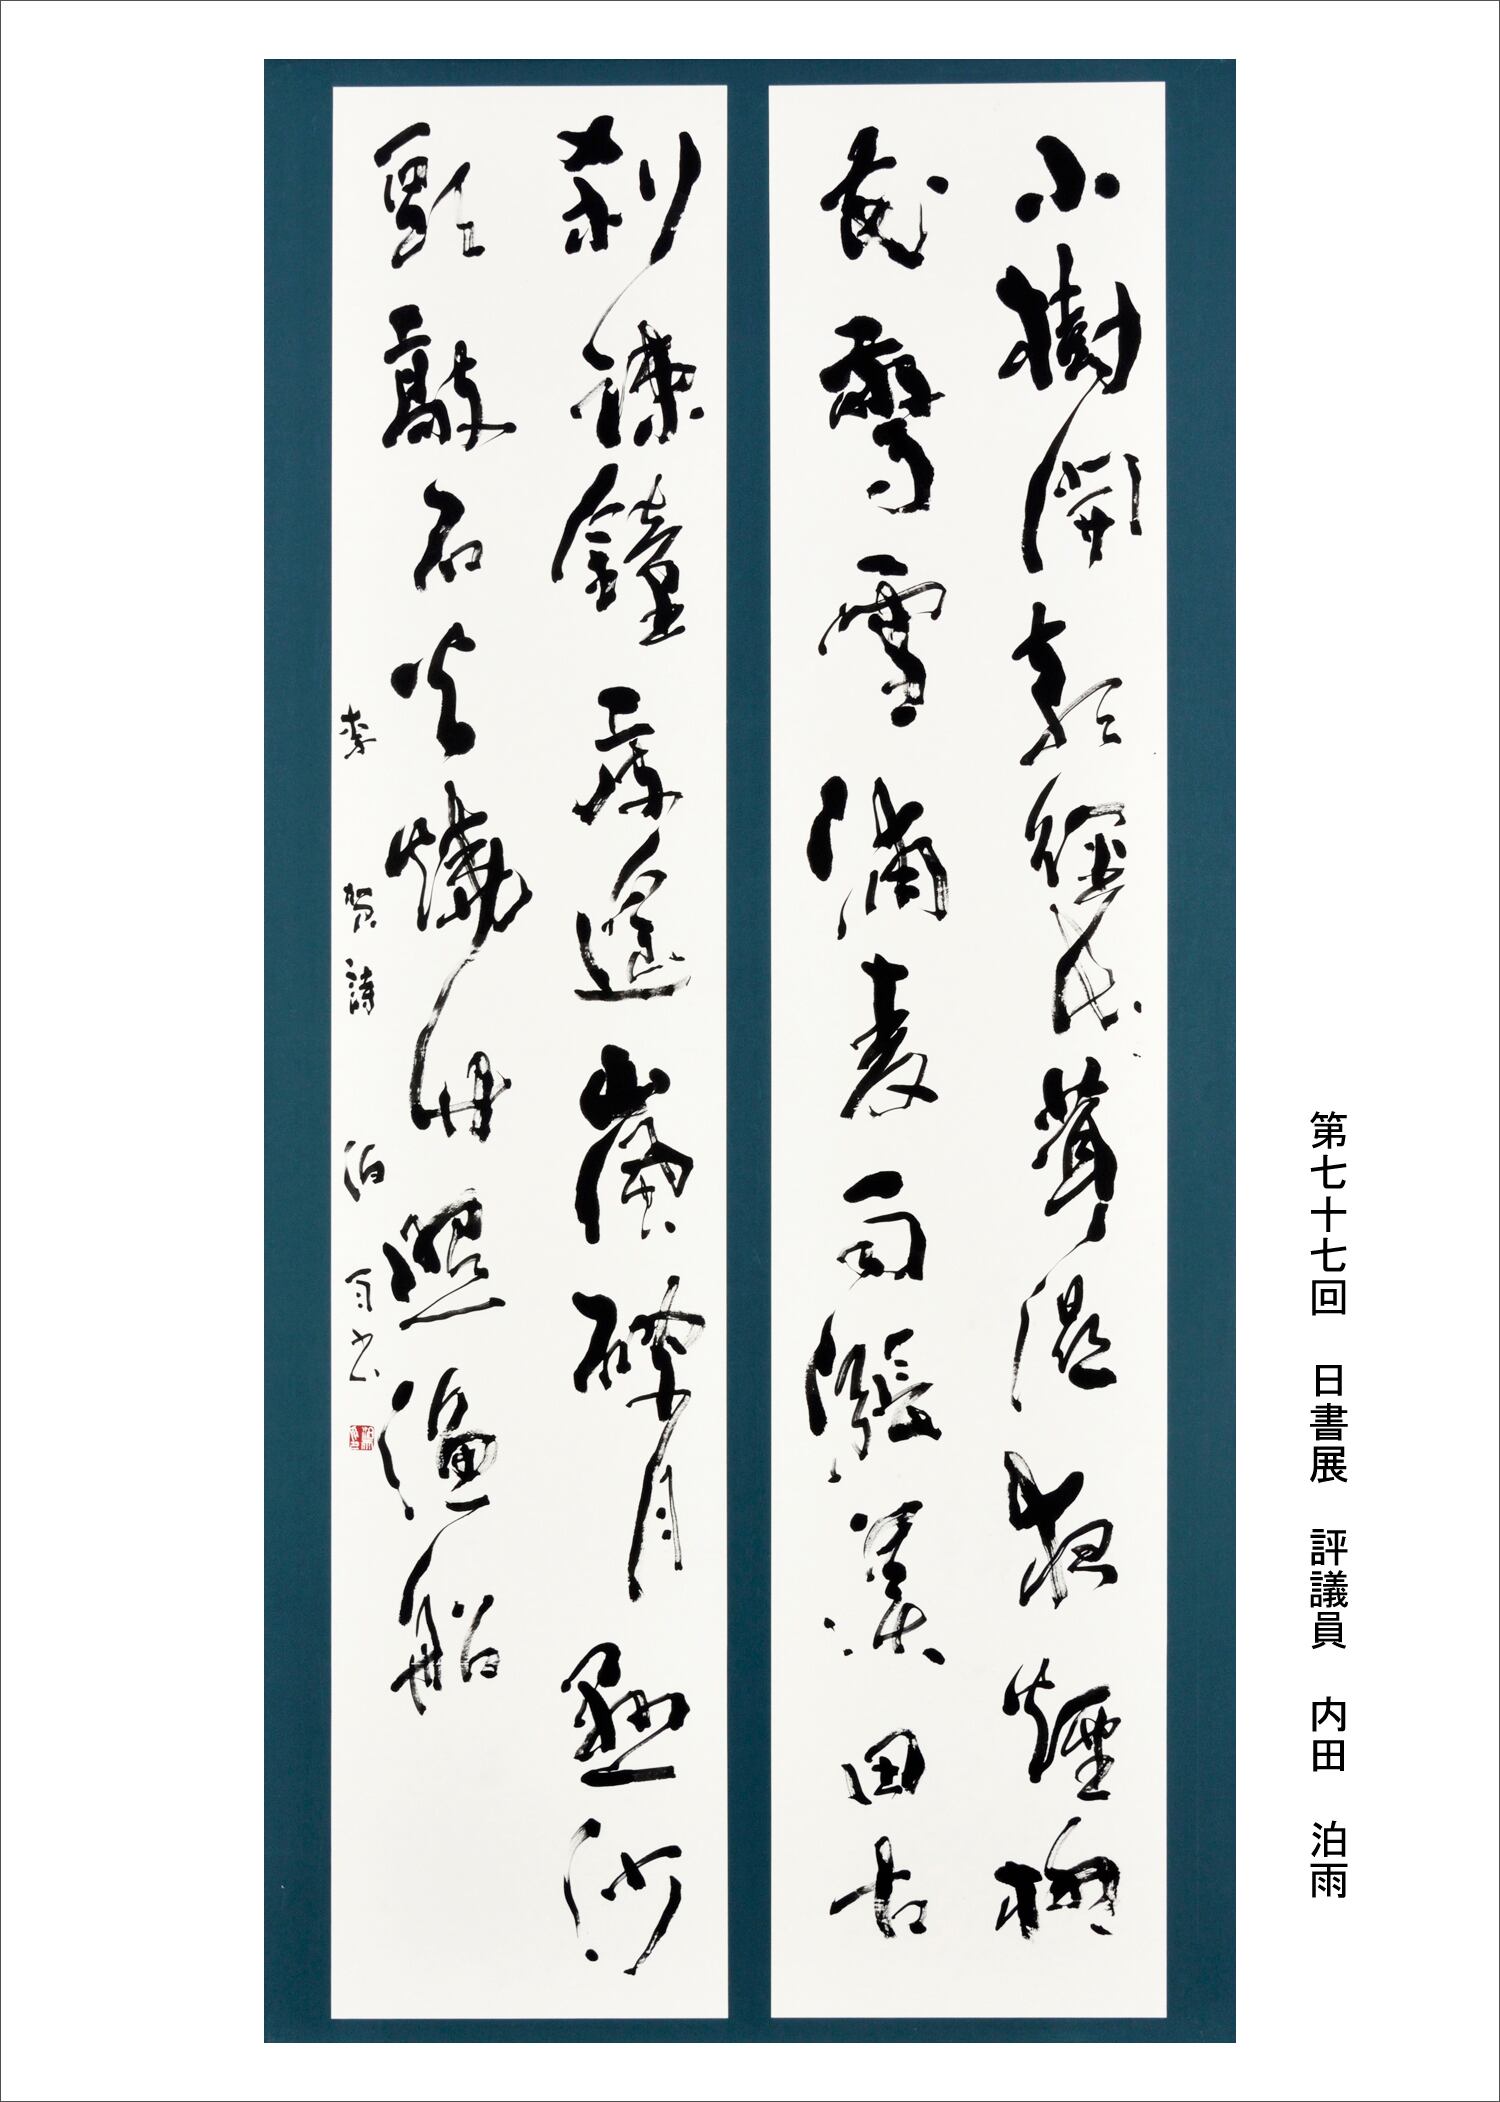 小樹開朝徑長茸濕夜煙柳
花驚雪浦麥雨漲溪田古
刹疎鐘度遙嵐破月懸沙
頭敲石火燒竹照漁船
李賀詩 泊雨書
第七十七回 日書展 評議員 内田 泊雨